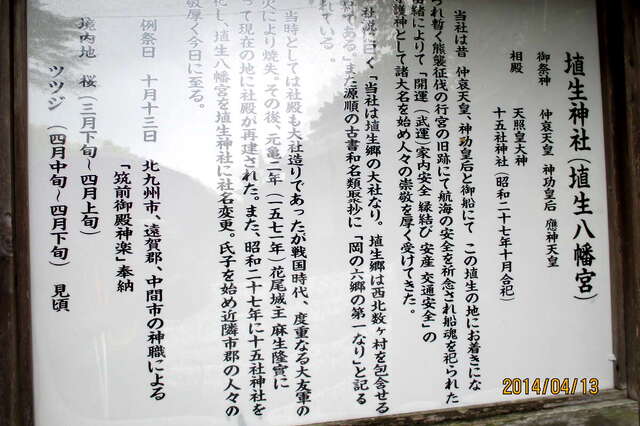 埴生神社（埴生八幡宮）
御祭神　仲哀天皇　神功皇后　應神天皇
相殿　天照皇大神
十五社神社（昭和二十七年十月合祀）
当社は昔　仲哀天皇、神功皇后と御船にて　この埴生の地にお着きにな
られ暫く熊襲征伐の行宮の旧跡にて航海の安全を祈念され船魂を祀られた
由緒によりて「開運（武運）家内安全　縁結び　安産　交通安全」の
護神として諸大名を始め人々の崇敬を厚く受けてきた。
社説に曰く「当社は埴生郷の大社なり。埴生郷は西北数ヶ村を包含せる
である。」また源順の古書和名類聚抄に「岡の六郷の第一なり」と記る
れている。
当時としては社殿も大社造りであったが戦国時代、度重なる大友軍の
火により焼失、その後、元亀二年（一五七一年）花尾城主　麻生隆實に
って現在の地に社殿が再建された。また、昭和二十七年に十五社神社を
化し、埴生八幡宮を埴生神社に社名変更。氏子を始め近隣市郡の人々の
敬厚く今日に至る。
例祭日　十月十三日　北九州市、遠賀郡、中間市の神職による
「筑前御殿神楽」奉納
境内地　桜（三月下旬～四月上旬）
ツツジ（四月中旬～四月下旬）　見頃
2014/04/13